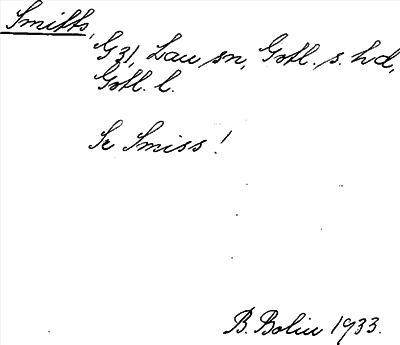 Smitts,
G 31, Lau sn, Gotl. s. hd,
Gotl. l.
Se Smiss!
B. Bolin 1933.